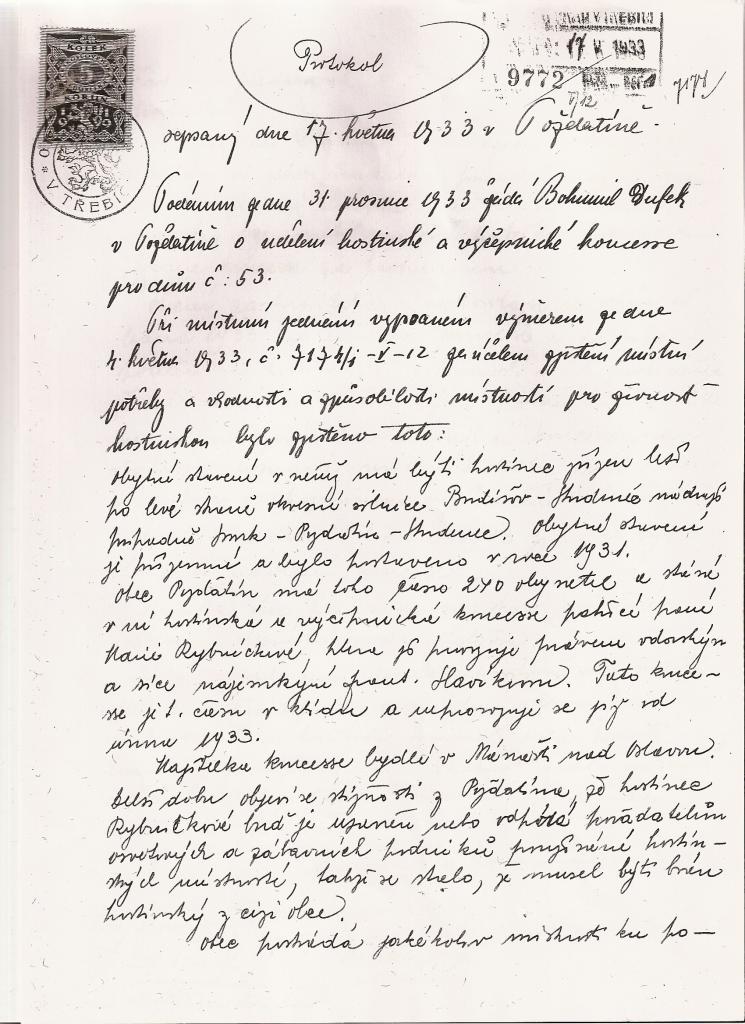 KOLEK
5
V TŘEBÍČI
17 V 1933
9772
V/12
7174
Protokol
sepsaný dne 17. května 1933 v Pozďatíně.
Podáním ze dne 31. prosince 1933 žádá Bohumil Dufek
v Pozďatíně o udělení hostinské a výčepnické koncesse
pro dům č: 53.
Při místním jednání vypsaném výměrem ze dne
4. května 1933, č. 7174/1-V-12 za účelem zjištění místní
potřeby a vhodnosti a způsobilosti místností pro živnost
hostinskou bylo zjištěno toto:
Obytné stavení v němž má býti hostinec zřízen leží
po levé straně okresní silnice Budišov - Studenec nádraží
případně Smrk - Pozďatín - Studenec. Obytné stavení
je přízemní a bylo postaveno v roce 1931.
Obec Pozďatín má toho času 240 obyvatel a stává
v ní hostinská a výčepnická koncesse patřící paní
Marii Rybníčkové, která ji provozuje právem vdovským
a sice nájemkyní Havlíkovou. Tato konce-
sse je t. času v klidu a neprovozuje se již od
února 1933.
Majitelka koncesse bydlí v Náměšti nad Oslavou.
Delší dobu objeví se stížnosti z Pozďatína, že hostinec
Rybníčkové buď je uzavřen nebo odpírá pořadatelům
osvětových a zábavních podniků propůjčení hostin-
ských místností, takže se stalo, že musel býti brán
hostinský z cizí obce.
Obec postrádá jakékoliv místnosti ku po-